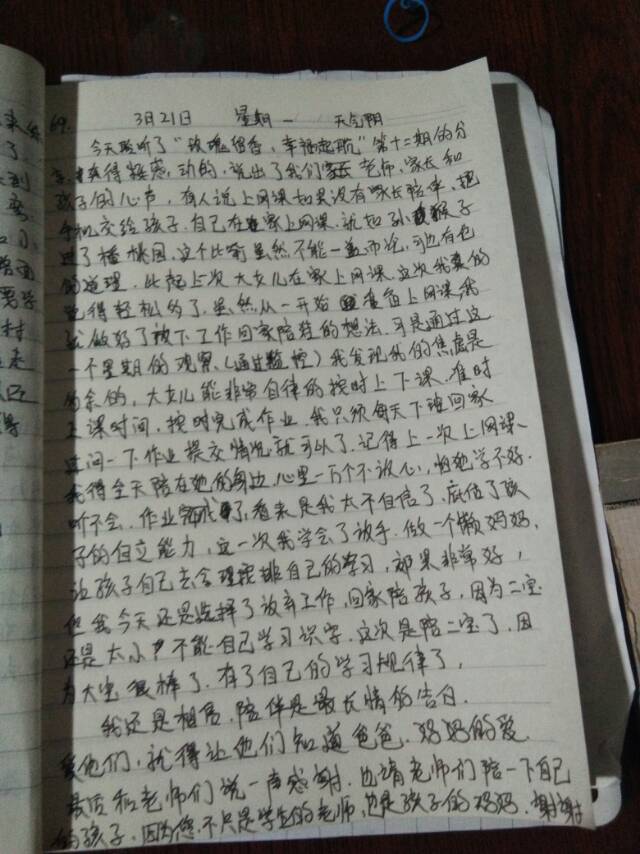 69.
3月21日 星期一 天气阴
今天聆听了“玫瑰留香，幸福起航”第十三期的分
享,觉得挺感动的,说出了我们家长老师,家长和
孩子的心声,有人说上网课如果没有家长陪伴,把
手机交给孩子,自己在家上网课,就如孙猴子
进了蟠桃园,这个比喻虽然不能一盖而论,可也有他
的道理,比起上次大女儿在家上网课,这次我真的
觉得轻松多了,虽然从一开始宣布上网课,我
就做好了放下工作回家陪娃的想法,可是通过这
一个星期的观察,(通过监控)我发现我的焦虑是
多余的,大女儿能非常自律的按时上下课,准时
上课时间,按时完成作业,我只须每天下班回家
过问一下作业提交情况就可以了,记得上一次上网课、
我得全天陪在她的身边,心里一万个不放心,怕她学不好.
听不会,作业完成了,看来是我太不自信了,底估了孩
子的自立能力,这一次我学会了放手,做一个懒妈妈,
让孩子自己去合理安排自己的学习,效果非常好,
但我今天还是选择了放弃工作,回家陪孩子,因为二宝
还是太小,不能自己学习识字,这次是陪二宝了,因
为大宝很棒了,有了自己的学习规律了,
我还是相信,陪伴是最长情的告白.
爱他们,就得让他们知道爸爸,妈妈的爱.
最后和老师们说一声感谢,也请老师们陪一下自己
的孩子,因为您,不只是学生的老师,也是孩子的妈妈,谢谢